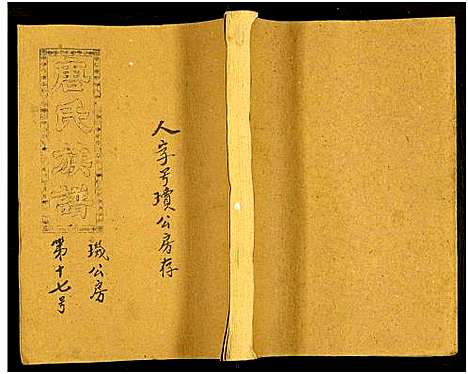 人字号璸公房存
唐氏族谱
璣公房
第十七号